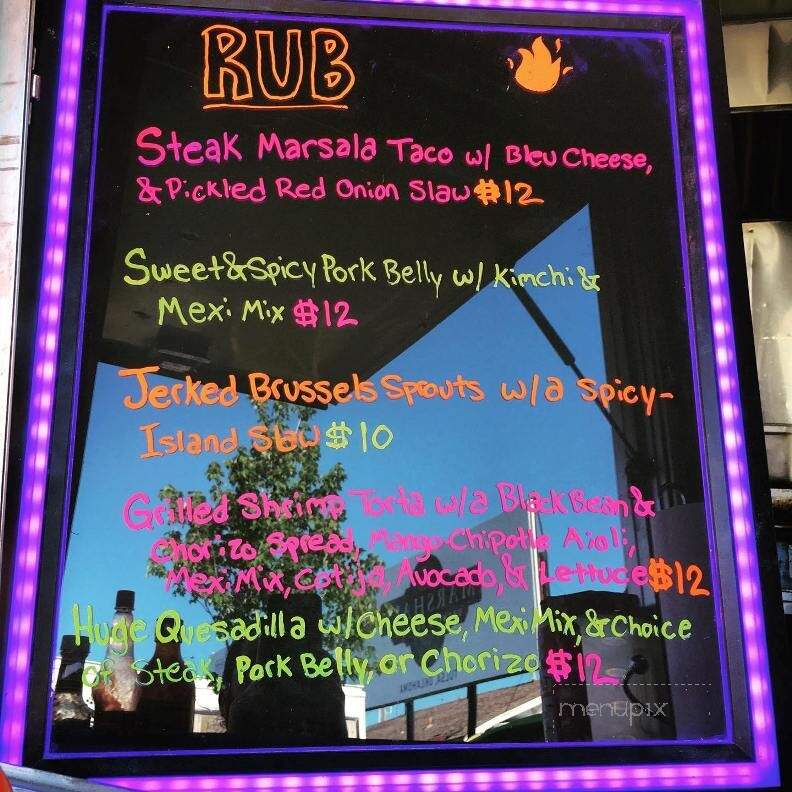 RUB
Steak Marsala Taco w/ Bleu Cheese,
& Pickled Red Onion Slaw $12
Sweet & Spicy Pork Belly w/ Kimchi &
Mexi Mix $12
Jerked Brussels Sprouts w/a Spicy-
Island Slaw $10
Grilled Shrimp Torta w/a Black Bean &
Chorizo Spread, Mango-Chipotle Aioli,
Mexi Mix, Cotija, Avocado, & Lettuce $12
MARSHALL
TULSA, OKLAHOMA
Huge Quesadilla w/ Cheese, Mexi Mix, & Choice
of Steak, Pork Belly, or Chorizo $12
menupix